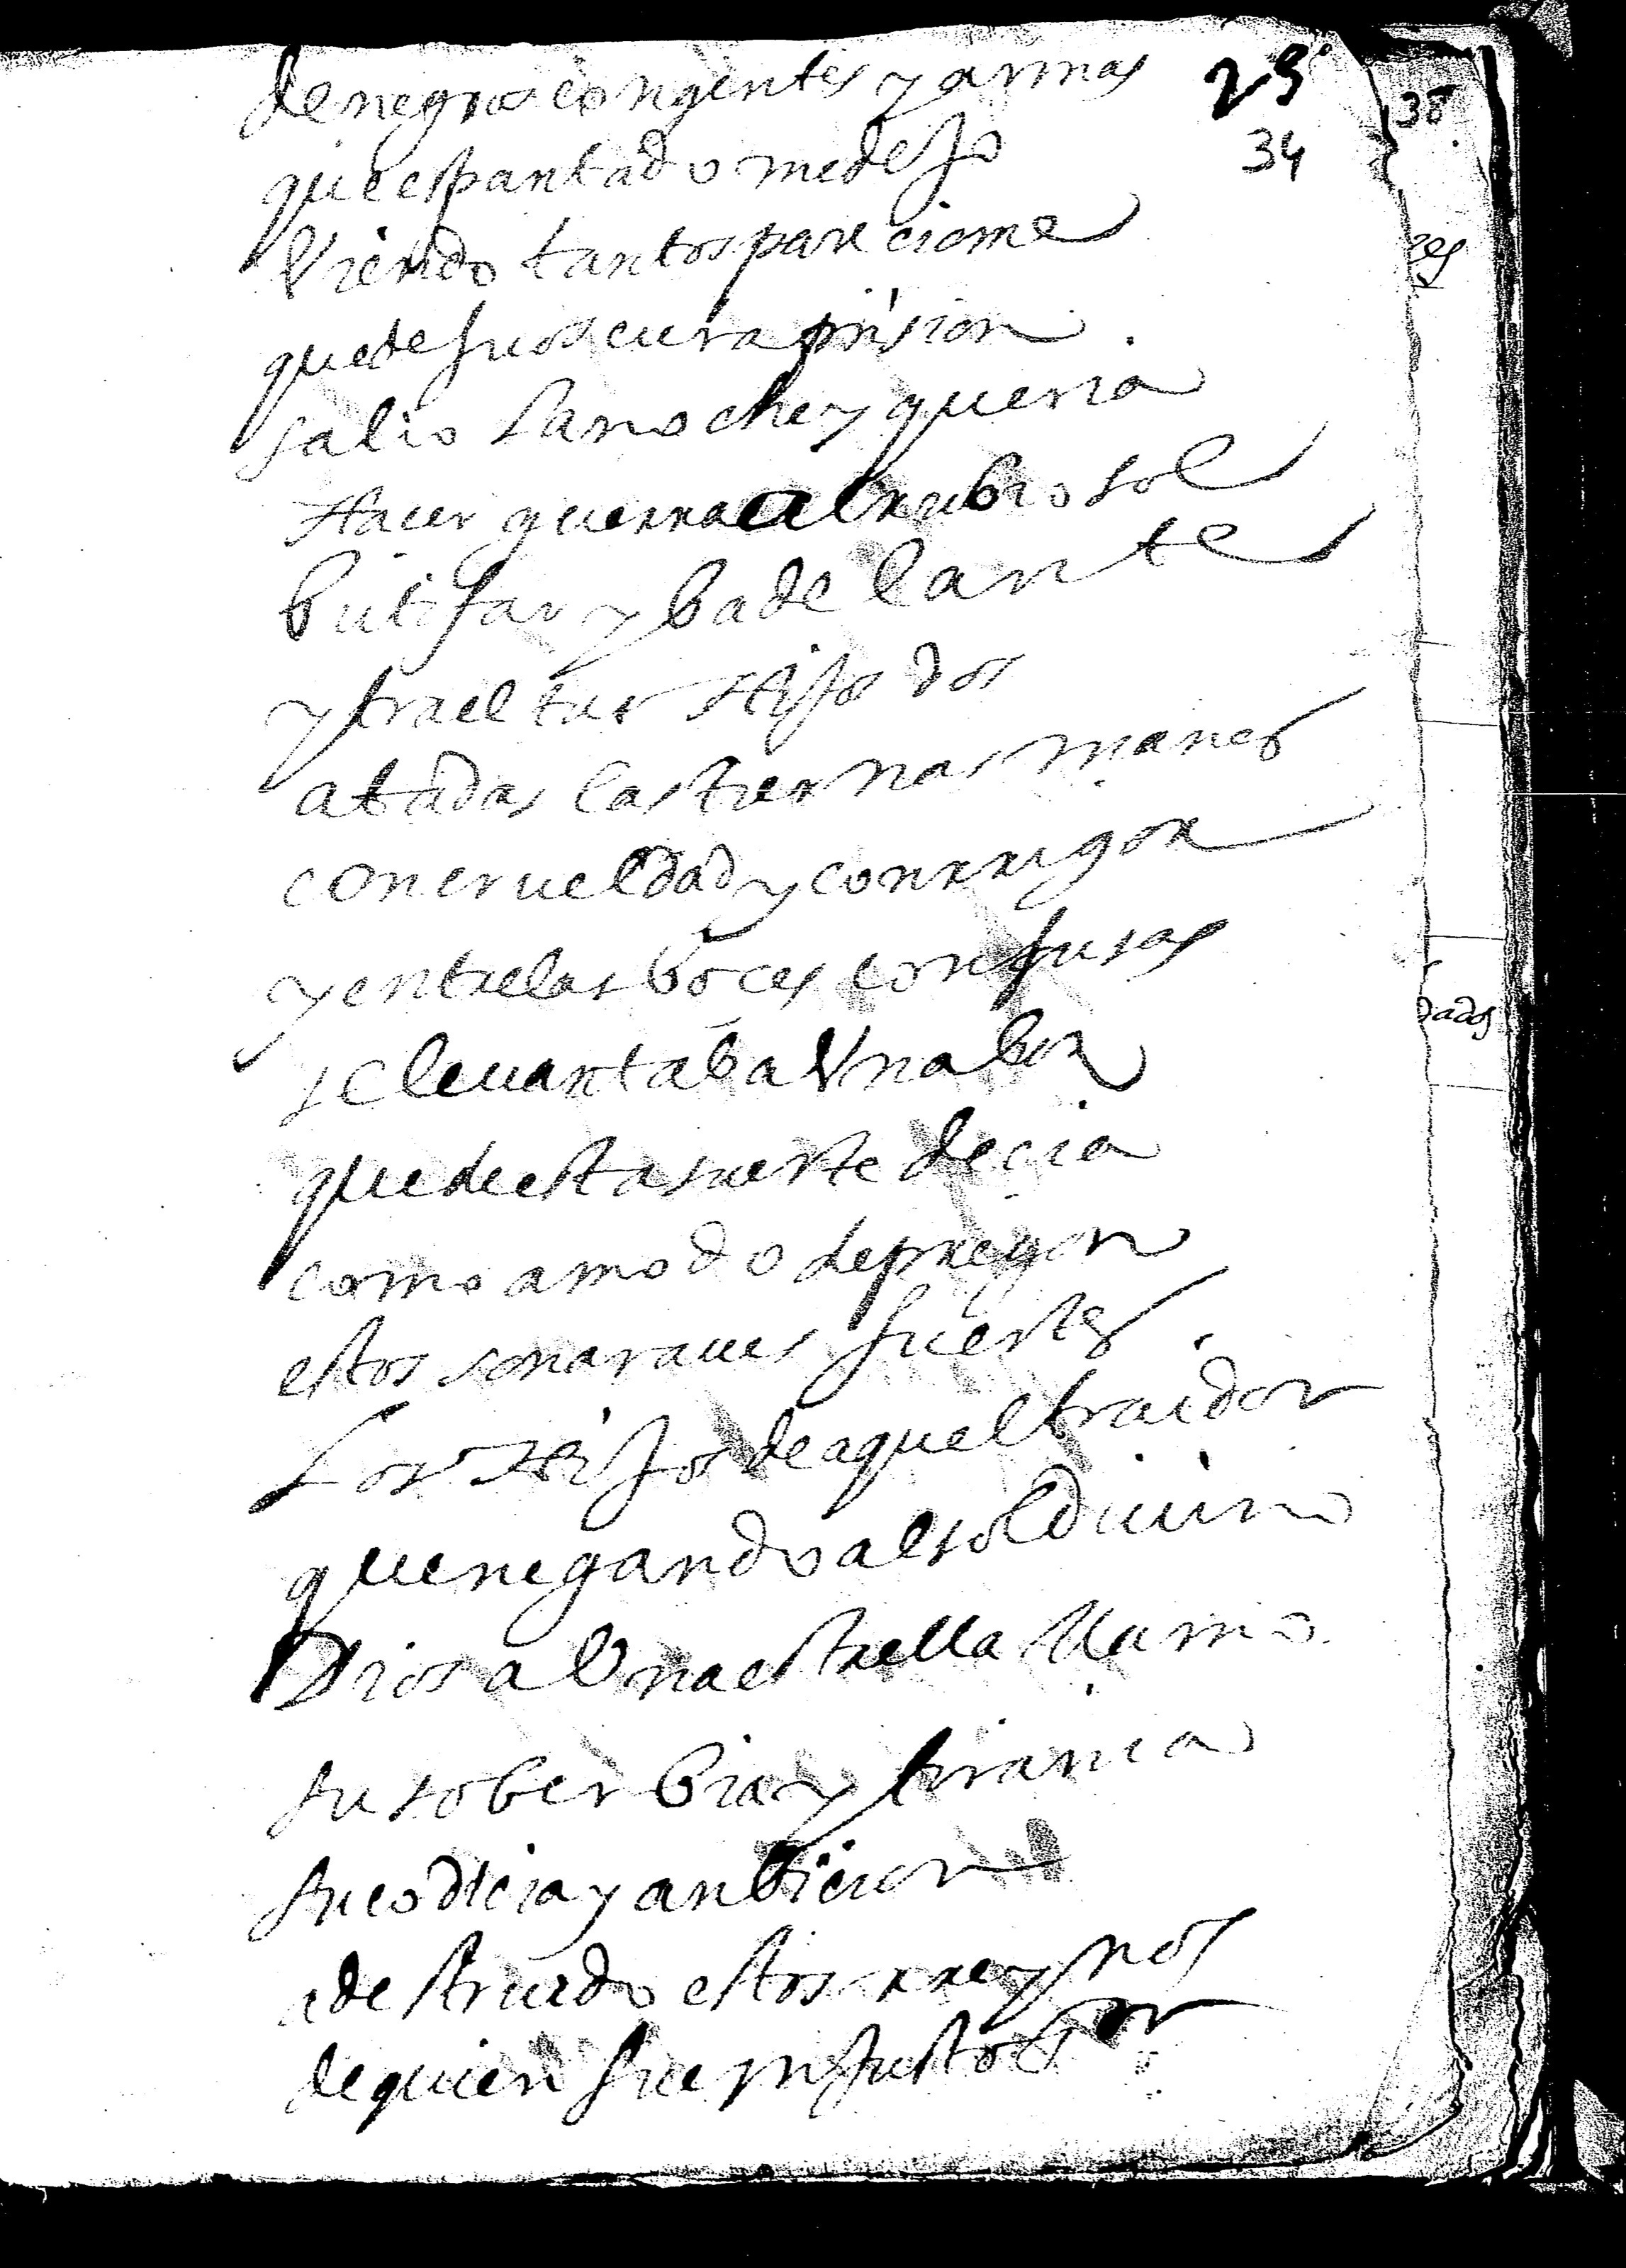 de negros con gentes y armas
29
38
34
que espantado me dejo
Viendo tantos pareciome
res
que de su oscura prision
salio la noche y queria
Hacer guerra al rubio sol
butifar yba delante
y trae tus Hijos dos
atadas las tiernas manos
con crueldad y con rrigor
y entre las boces confusas
dados
se leuantaba Vna boz
que de esta suerte decia
como a modo de pregon
estos son araues fuertes
Los Hijos de aquel traidor
que negando al sol diuino
Dios a Vna estrella llamo
su soberbia y tirania
su codicia y anbicion
a destruido estos rreynos
de quien fue ynjusto Sor